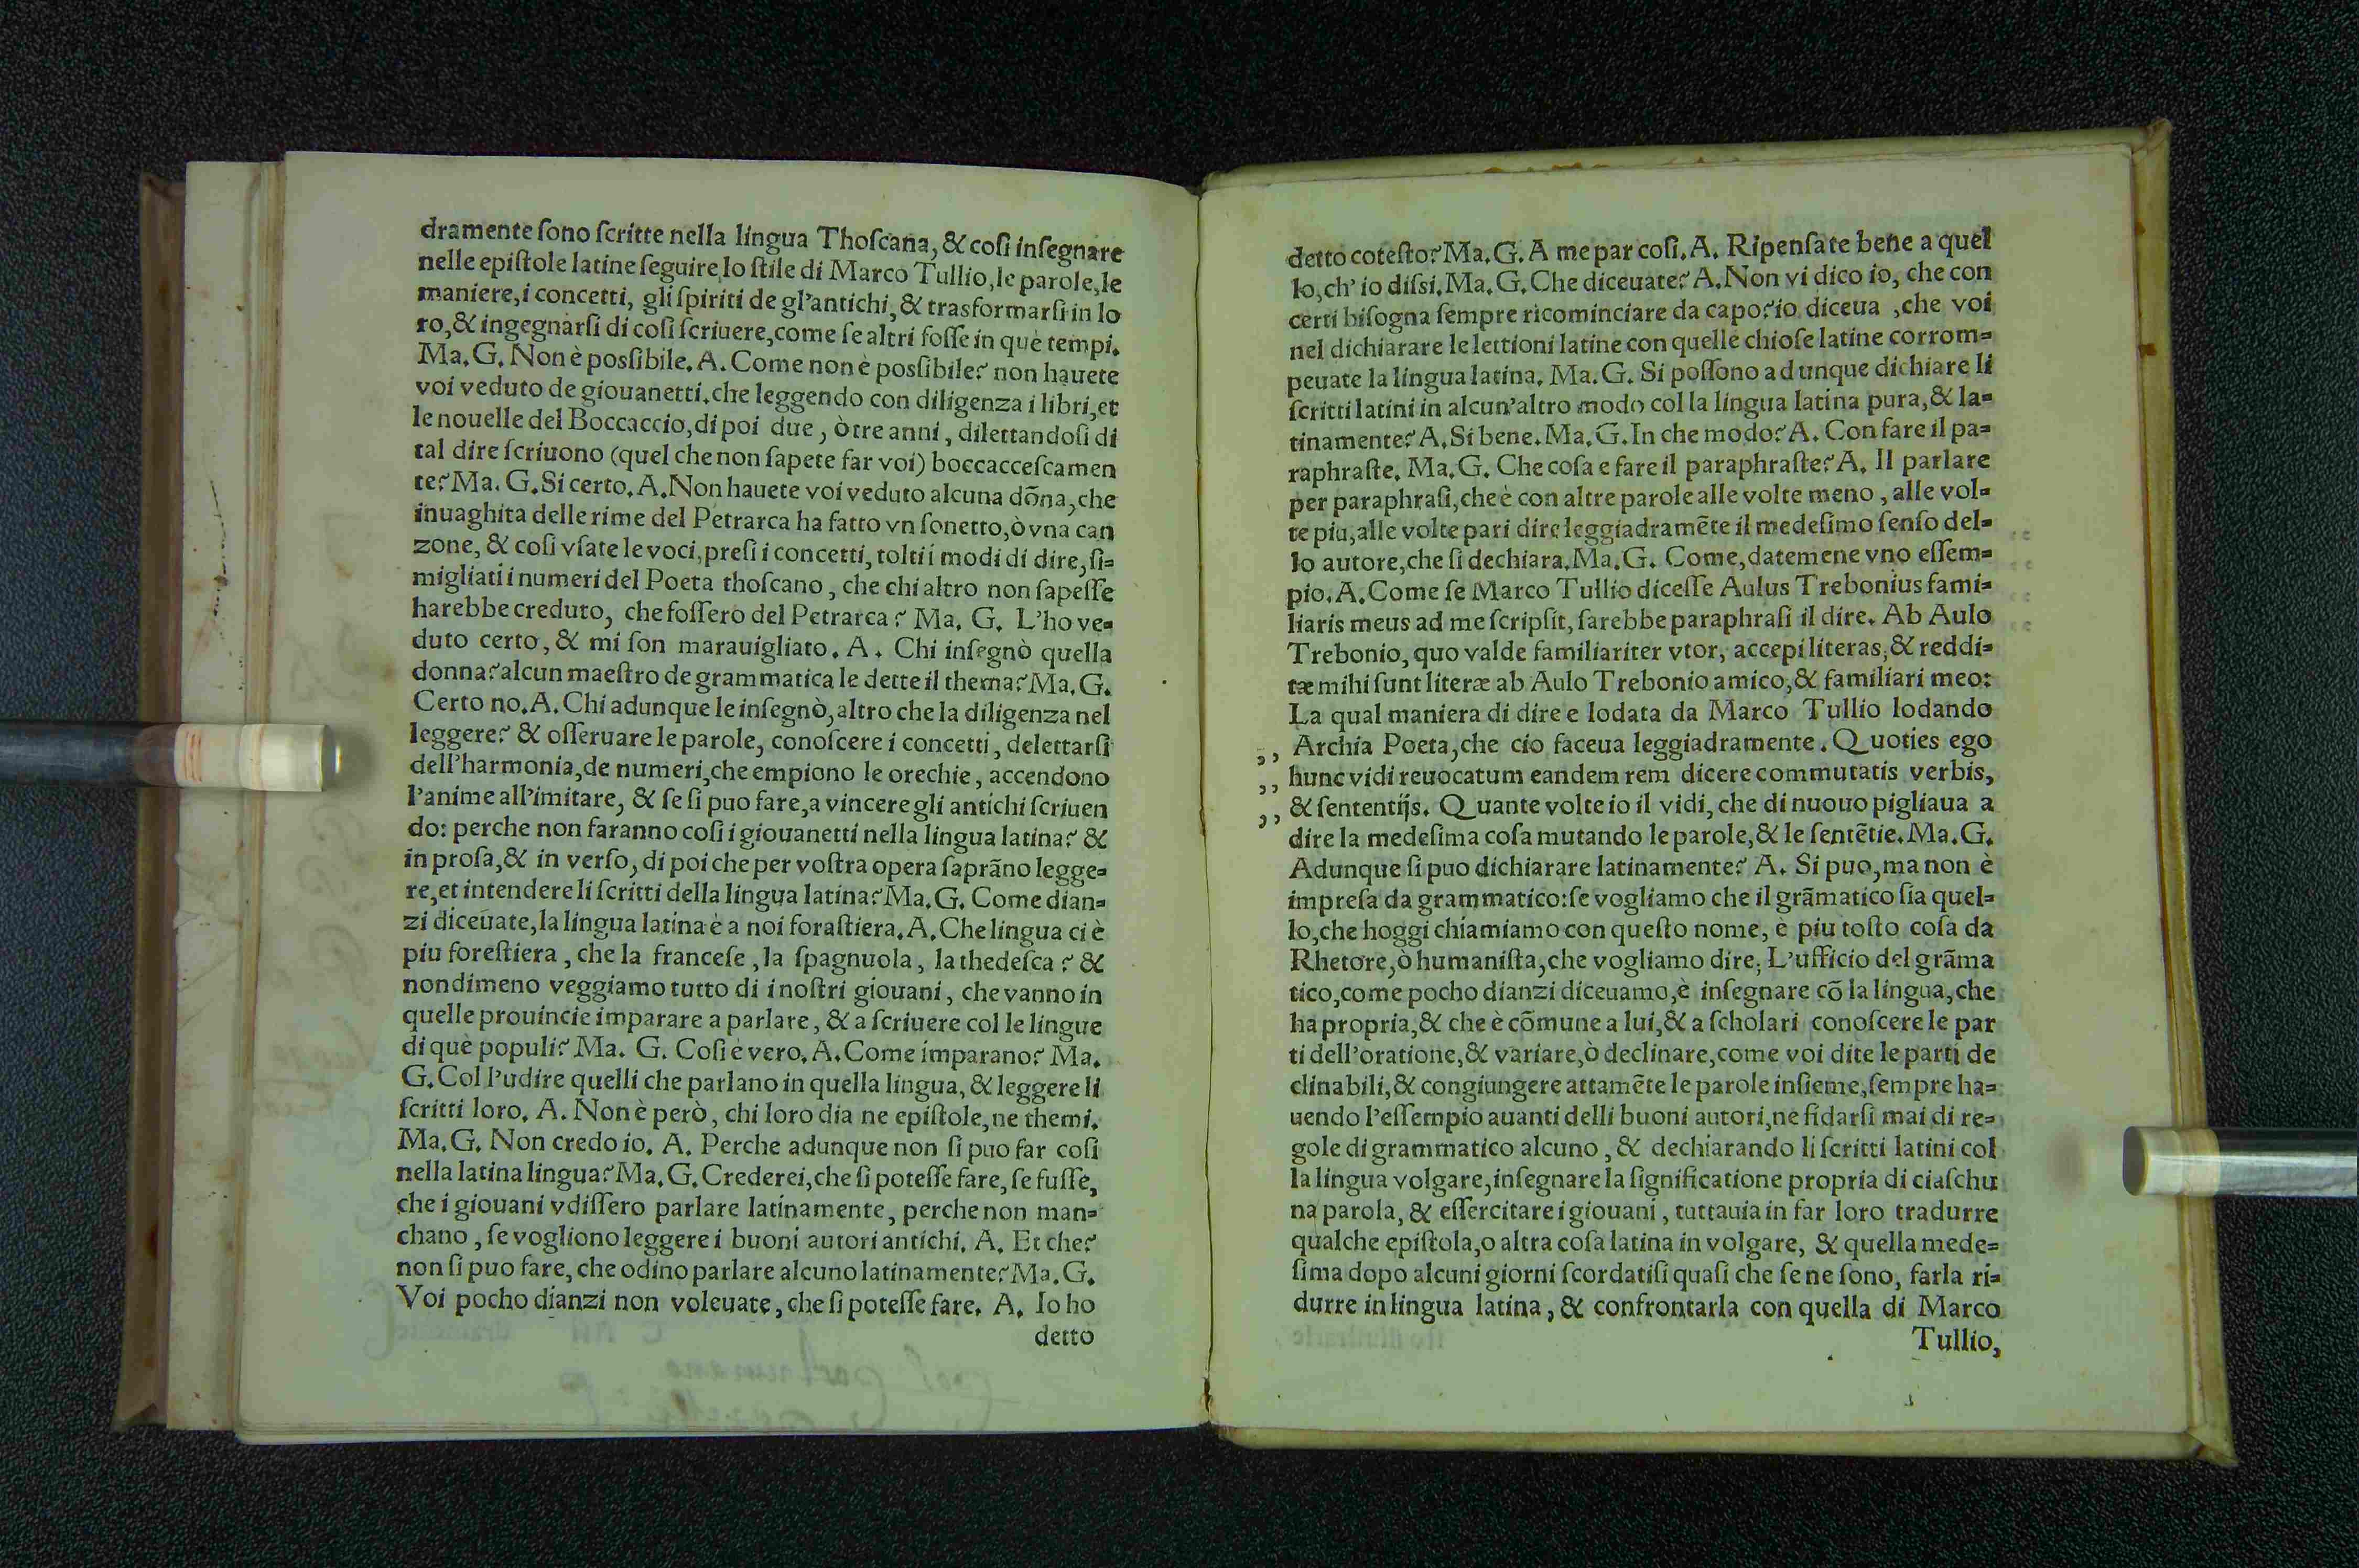 dramente ſono ſcritte nella lingua Thoſcana, & coſi inſegnare
nelle epiſtole latine ſeguire lo ſtile di Marco Tullio, le parole, le
maniere, i concetti, gli ſpiriti de gl'antichi, & trasformarſi in lo
ro, & ingegnarſi di coſi ſcriuere, come ſe altri foſſe in què tempi.
Ma. G. Non è poſsibile. A. Come non è poſsibile? non hauete
voi veduto de giouanetti, che leggendo con diligenza i libri, et
le nouelle del Boccaccio, di poi due, ò tre anni, dilettandoſi di
tal dire ſcriuono (quel che non ſapete far voi) boccacceſcamen
te? Ma. G. Si certo. A. Non hauete voi veduto alcuna dõna, che
inuaghita delle rime del Petrarca ha fatto vn ſonetto, ò vna can
zone, & coſi vſate le voci, preſi i concetti, tolti i modi di dire, ſi=
migliati i numeri del Poeta thoſcano, che chi altro non ſapeſſe
harebbe creduto, che foſſero del Petrarca? Ma. G. L'ho ve=
duto certo, & mi ſon marauigliato. A. Chi inſegnò quella
donna? alcun maeſtro de grammatica le dette il thema? Ma. G.
Certo no. A. Chi adunque le inſegnò, altro che la diligenza nel
leggere? & oſſeruare le parole, conoſcere i concetti, delettarſi
dell'harmonia, de numeri, che empiono le orechie, accendono
l'anime all'imitare, & ſe ſi puo fare, a vincere gli antichi ſcriuen
do: perche non faranno coſi i giouanetti nella lingua latina? &
in proſa, & in verſo, di poi che per voſtra opera ſaprãno legge=
re, et intendere li ſcritti della lingua latina? Ma. G. Come dian=
zi diceuate, la lingua latina è a noi foraſtiera. A. Che lingua ci è
piu foreſtiera, che la franceſe, la ſpagnuola, la thedeſca? &
nondimeno veggiamo tutto di i noſtri giouani, che vanno in
quelle prouincie imparare a parlare, & a ſcriuere col le lingue
di què populi? Ma. G. Coſi è vero. A. Come imparano? Ma.
G. Col l'udire quelli che parlano in quella lingua, & leggere li
ſcritti loro. A. Non è però, chi loro dia ne epiſtole, ne themi.
Ma. G. Non credo io. A. Perche adunque non ſi puo far coſi
nella latina lingua? Ma. G. Crederei, che ſi poteſſe fare, ſe fuſſe,
che i giouani vdiſſero parlare latinamente, perche non man=
chano, ſe vogliono leggere i buoni autori antichi. A. Et che?
non ſi puo fare, che odino parlare alcuno latinamente? Ma. G.
Voi pocho dianzi non voleuate, che ſi poteſſe fare. A. Io ho
detto
detto coteſto? Ma. G. A me par coſi. A. Ripenſate bene a quel
lo, ch' io diſsi. Ma. G. Che diceuate? A. Non vi dico io, che con
certi biſogna ſempre ricominciare da capo? io diceua, che voi
nel dichiarare le lettioni latine con quelle chioſe latine corrom=
peuate la lingua latina. Ma. G. Si poſſono adunque dichiare li
ſcritti latini in alcun'altro modo col la lingua latina pura, & la=
tinamente? A. Si bene. Ma. G. In che modo? A. Con fare il pa=
raphraſte. Ma. G. Che coſa e fare il paraphraſte? A. Il parlare
per paraphraſi, che è con altre parole alle volte meno, alle vol=
te piu, alle volte pari dire leggiadramẽte il medeſimo ſenſo del=
lo autore, che ſi dechiara. Ma. G. Come, datemene vno eſſem=
pio. A. Come ſe Marco Tullio diceſſe Aulus Trebonius fami=
liaris meus ad me ſcripſit, ſarebbe paraphraſi il dire. Ab Aulo
Trebonio, quo valde familiariter vtor, accepi literas, & reddi=
tæ mihi ſunt literæ ab Aulo Trebonio amico, & familiari meo:
La qual maniera di dire e lodata da Marco Tullio lodando
,, Archia Poeta, che cio faceua leggiadramente. Quoties ego
,, hunc vidi reuocatum eandem rem dicere commutatis verbis,
,, & ſententijs. Quante volte io il vidi, che di nuouo pigliaua a
dire la medeſima coſa mutando le parole, & le ſentẽtie. Ma. G.
Adunque ſi puo dichiarare latinamente? A. Si puo, ma non è
impreſa da grammatico: ſe vogliamo che il grãmatico ſia quel=
lo, che hoggi chiamiamo con queſto nome, è piu toſto coſa da
Rhetore, ò humaniſta, che vogliamo dire. L'ufficio del grãma
tico, come pocho dianzi diceuamo, è inſegnare cõ la lingua, che
ha propria, & che è cõmune a lui, & a ſcholari conoſcere le par
ti dell'oratione, & variare, ò declinare, come voi dite le parti de
clinabili, & congiungere attamẽte le parole inſieme, ſempre ha=
uendo l'eſſempio auanti delli buoni autori, ne fidarſi mai di re=
gole di grammatico alcuno, & dechiarando li ſcritti latini col
la lingua volgare, inſegnare la ſignificatione propria di ciaſchu
na parola, & eſſercitare i giouani, tuttauia in far loro tradurre
qualche epiſtola, o altra coſa latina in volgare, & quella mede=
ſima dopo alcuni giorni ſcordatiſi quaſi che ſe ne ſono, farla ri=
durre in lingua latina, & confrontarla con quella di Marco
Tullio,